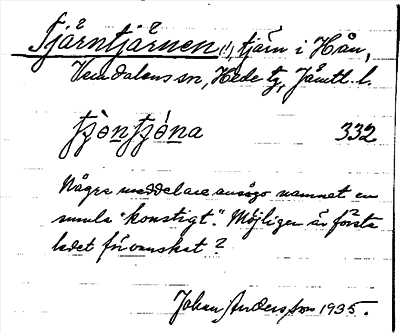 Tjärntjärnen(!), tjärn i Hån,
Vemdalens sn, Hede tg, Jämtl. l.
tjòntjéna 332
Några meddelare ansågo namnet en
smula "konstigt". Möjligen är första
ledet förvanskat?
Johan Andersson 1935.